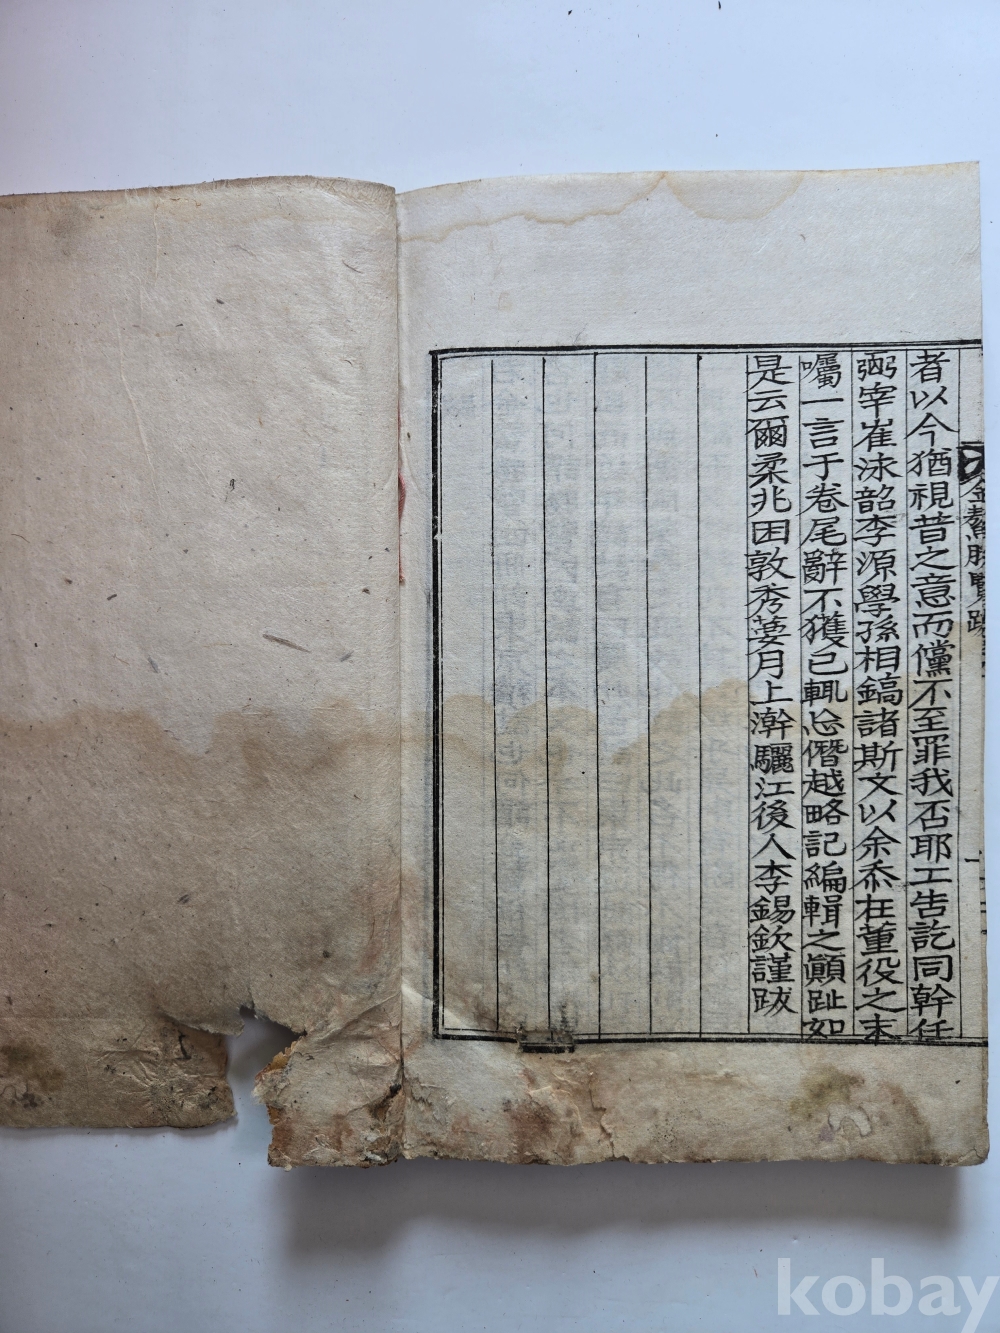 金鰲勝覽跋
者以今猶視昔之意而儻不至罪我否耶工告訖同幹任
弼宰崔泳韶李源學孫相鎬諸斯文以余忝在董役之末
囑一言于卷尾辭不獲已輒忘僭越略記編輯之顚趾如
是云爾柔兆困敦秀葽月上澣驪江後人李錫欽謹跋
kobay